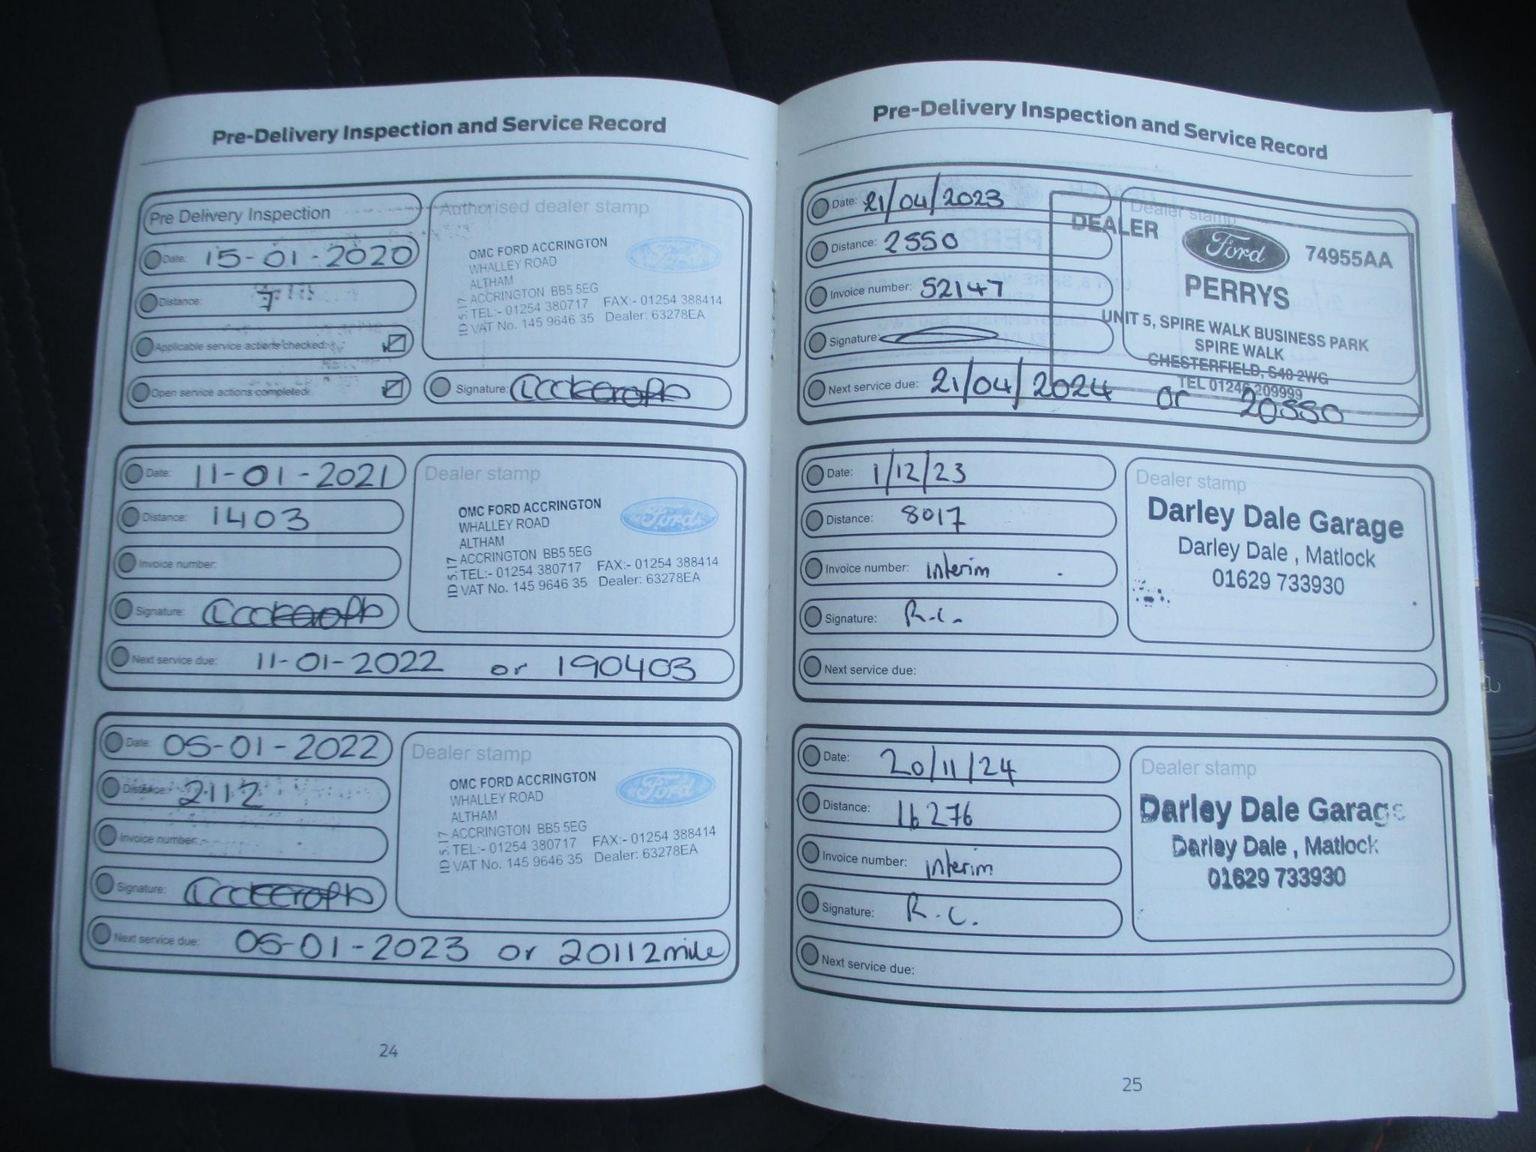 Pre-Delivery Inspection and Service Record
Pre Delivery Inspection
Date: 15-01-2020
Distance: 7
Applicable service actions checked:
Open service actions completed:
Authorised dealer stamp
OMC FORD ACCRINGTON
WHALLEY ROAD
ALTHAM
ACCRINGTON BB5 5EG
TEL:- 01254 380717 FAX:- 01254 388414
VAT No. 145 9646 35 Dealer: 63278EA
ID 5.17
Ford
Signature:
Date: 11-01-2021
Distance: 1403
Invoice number:
Signature:
Next service due: 11-01-2022 or 190403
Dealer stamp
OMC FORD ACCRINGTON
WHALLEY ROAD
ALTHAM
ACCRINGTON BB5 5EG
TEL:- 01254 380717 FAX:- 01254 388414
VAT No. 145 9646 35 Dealer: 63278EA
ID 5.17
Ford
Date: 05-01-2022
Distance: 2112
Invoice number:
Signature:
Next service due: 05-01-2023 or 20112mile
Dealer stamp
OMC FORD ACCRINGTON
WHALLEY ROAD
ALTHAM
ACCRINGTON BB5 5EG
TEL:- 01254 380717 FAX:- 01254 388414
VAT No. 145 9646 35 Dealer: 63278EA
ID 5.17
Ford
24
Pre-Delivery Inspection and Service Record
Date: 21/04/2023
Distance: 2550
Invoice number: 52147
Signature:
Next service due: 21/04/2024 or 20550
Dealer stamp
DEALER
Ford
74955AA
PERRYS
UNIT 5, SPIRE WALK BUSINESS PARK
SPIRE WALK
CHESTERFIELD, S40 2WG
TEL 01246 209999
Date: 1/12/23
Distance: 8017
Invoice number: interim
Signature: R.C.
Next service due:
Dealer stamp
Darley Dale Garage
Darley Dale , Matlock
01629 733930
Date: 20/11/24
Distance: 16276
Invoice number: interim
Signature: R.C.
Next service due:
Dealer stamp
Darley Dale Garage
Darley Dale , Matlock
01629 733930
25